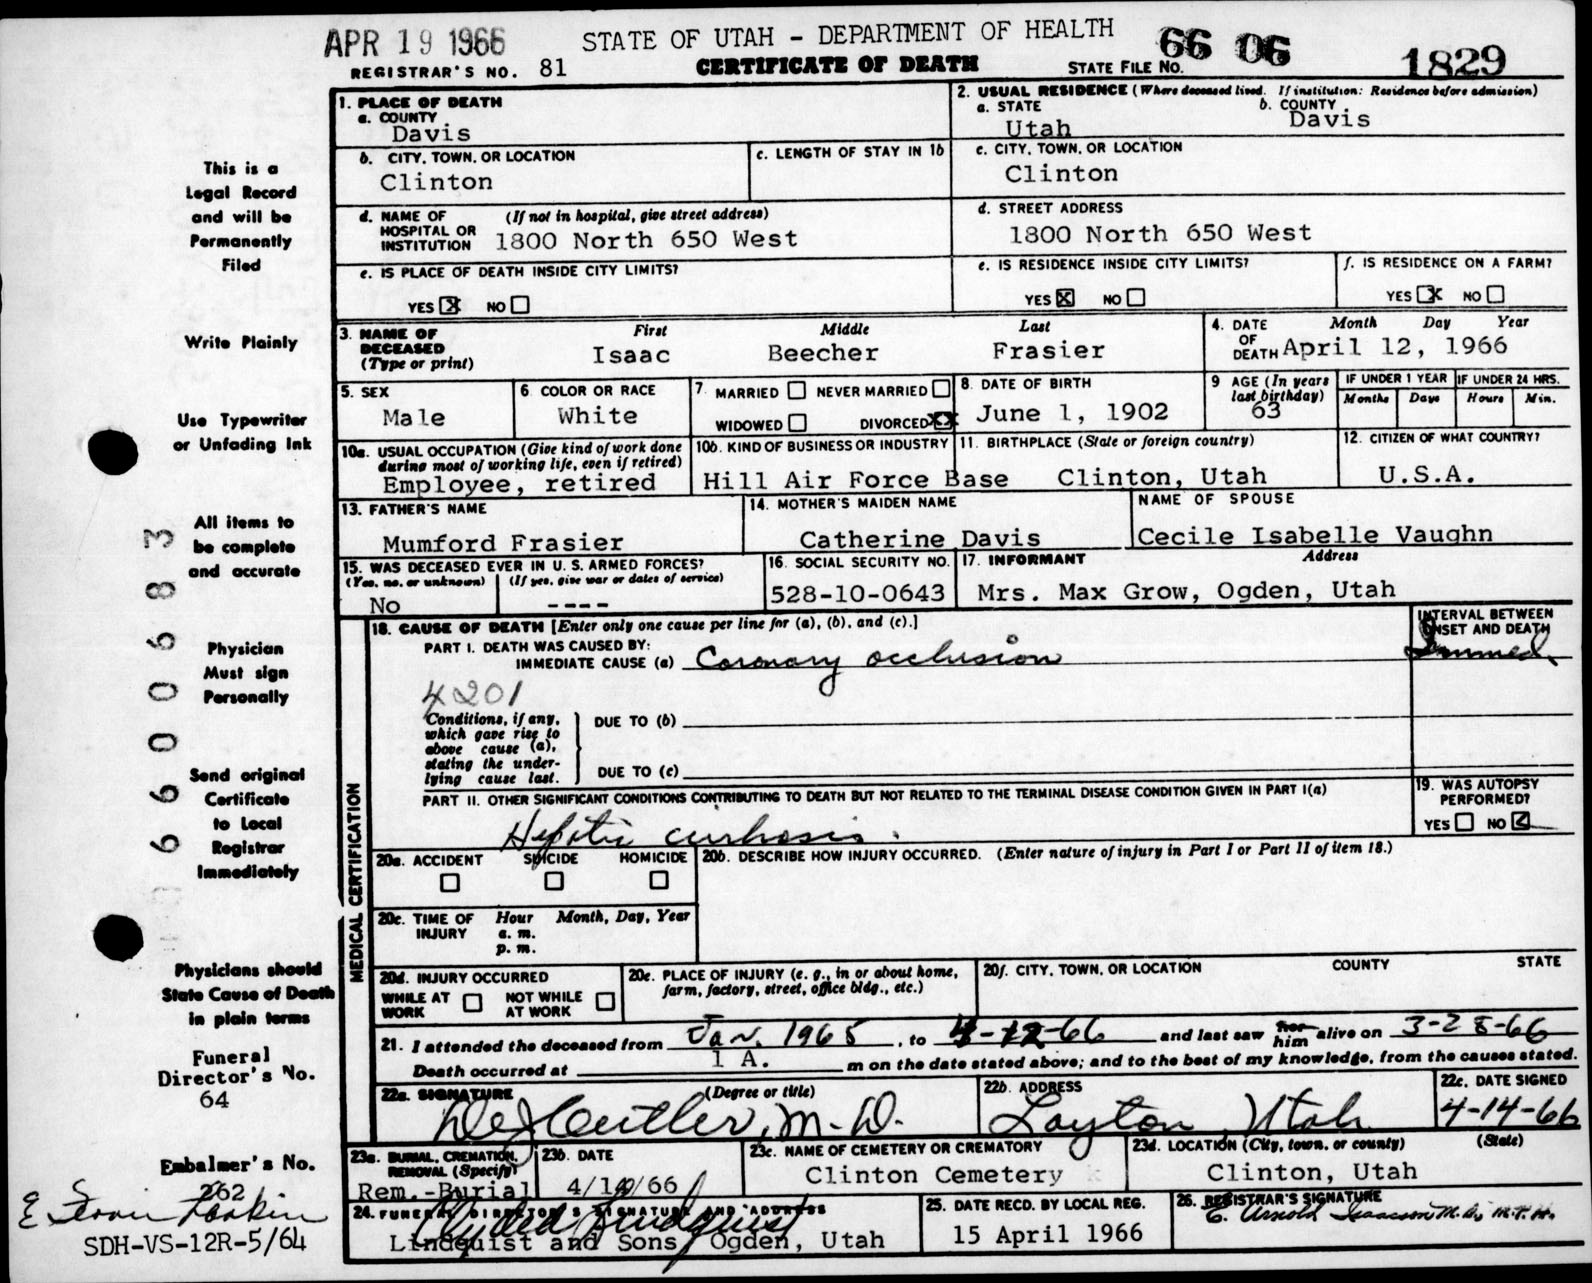 APR 19 1966
STATE OF UTAH - DEPARTMENT OF HEALTH
66 06 1829
REGISTRAR'S NO. 81
CERTIFICATE OF DEATH
STATE FILE NO.
1. PLACE OF DEATH
a. COUNTY
Davis
2. USUAL RESIDENCE (Where deceased lived. If institution: Residence before admission)
a. STATE
Utah
b. COUNTY
Davis
b. CITY, TOWN, OR LOCATION
Clinton
c. LENGTH OF STAY IN 1b
c. CITY, TOWN, OR LOCATION
Clinton
d. NAME OF HOSPITAL OR INSTITUTION
(If not in hospital, give street address)
1800 North 650 West
d. STREET ADDRESS
1800 North 650 West
e. IS PLACE OF DEATH INSIDE CITY LIMITS?
YES X NO
e. IS RESIDENCE INSIDE CITY LIMITS?
YES X NO
f. IS RESIDENCE ON A FARM?
YES X NO
3. NAME OF DECEASED (Type or print)
First Middle Last
Isaac Beecher Frasier
4. DATE OF DEATH
Month Day Year
April 12, 1966
5. SEX
Male
6. COLOR OR RACE
White
7. MARRIED NEVER MARRIED
WIDOWED DIVORCED XX
8. DATE OF BIRTH
June 1, 1902
9 AGE (In years last birthday)
63
IF UNDER 1 YEAR
Months Days
IF UNDER 24 HRS.
Hours Min.
10a. USUAL OCCUPATION (Give kind of work done during most of working life, even if retired)
Employee, retired
10b. KIND OF BUSINESS OR INDUSTRY
Hill Air Force Base
11. BIRTHPLACE (State or foreign country)
Clinton, Utah
12. CITIZEN OF WHAT COUNTRY?
U.S.A.
13. FATHER'S NAME
Mumford Frasier
14. MOTHER'S MAIDEN NAME
Catherine Davis
NAME OF SPOUSE
Cecile Isabelle Vaughn
15. WAS DECEASED EVER IN U. S. ARMED FORCES?
(Yes, no, or unknown) (If yes, give war or dates of service)
No ----
16. SOCIAL SECURITY NO.
528-10-0643
17. INFORMANT Address
Mrs. Max Grow, Ogden, Utah
MEDICAL CERTIFICATION
18. CAUSE OF DEATH [Enter only one cause per line for (a), (b), and (c).]
INTERVAL BETWEEN ONSET AND DEATH
PART I. DEATH WAS CAUSED BY:
IMMEDIATE CAUSE (a) Coronary occlusion
Immed.
4201
Conditions, if any, which gave rise to above cause (a), stating the underlying cause last.
DUE TO (b)
DUE TO (c)
PART II. OTHER SIGNIFICANT CONDITIONS CONTRIBUTING TO DEATH BUT NOT RELATED TO THE TERMINAL DISEASE CONDITION GIVEN IN PART I(a)
Hepatic cirrhosis.
19. WAS AUTOPSY PERFORMED?
YES NO
20a. ACCIDENT SUICIDE HOMICIDE
20b. DESCRIBE HOW INJURY OCCURRED. (Enter nature of injury in Part I or Part II of item 18.)
20c. TIME OF INJURY
Hour Month, Day, Year
a. m.
p. m.
20d. INJURY OCCURRED
WHILE AT WORK NOT WHILE AT WORK
20e. PLACE OF INJURY (e. g., in or about home, farm, factory, street, office bldg., etc.)
20f. CITY, TOWN, OR LOCATION COUNTY STATE
21. I attended the deceased from Jan. 1965, to 4-12-66 and last saw her him alive on 3-28-66
Death occurred at 1 A. m on the date stated above; and to the best of my knowledge, from the causes stated.
22a. SIGNATURE (Degree or title)
Cutler, M.D.
22b. ADDRESS
Layton, Utah
22c. DATE SIGNED
4-14-66
23a. BURIAL, CREMATION, REMOVAL (Specify)
Rem.-Burial
23b. DATE
23c. NAME OF CEMETERY OR CREMATORY
Clinton Cemetery
23d. LOCATION (City, town, or county) (State)
Clinton, Utah
24. FUNERAL DIRECTOR'S SIGNATURE AND ADDRESS
Lindquist and Sons Ogden, Utah
25. DATE RECD. BY LOCAL REG.
15 April 1966
26. REGISTRAR'S SIGNATURE
E. Arnold Isaacson M.D., M.P.H.
This is a
Legal Record
and will be
Permanently
Filed
Write Plainly
Use Typewriter
or Unfading Ink
All items to
be complete
and accurate
Physician
Must sign
Personally
Send original
Certificate
to Local
Registrar
Immediately
Physicians should
State Cause of Death
in plain terms
Funeral
Director's No.
64
Embalmer's No.
262
SDH-VS-12R-5/64